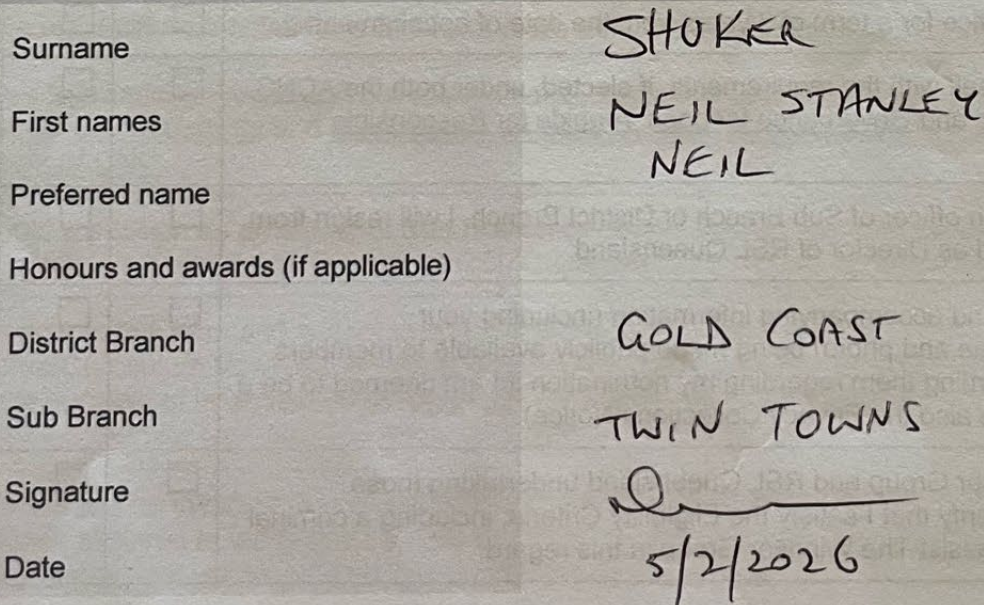 Surname SHUKER
First names NEIL STANLEY
NEIL
Preferred name
Honours and awards (if applicable)
District Branch GOLD COAST
Sub Branch TWIN TOWNS
Signature
Date 5/2/2026